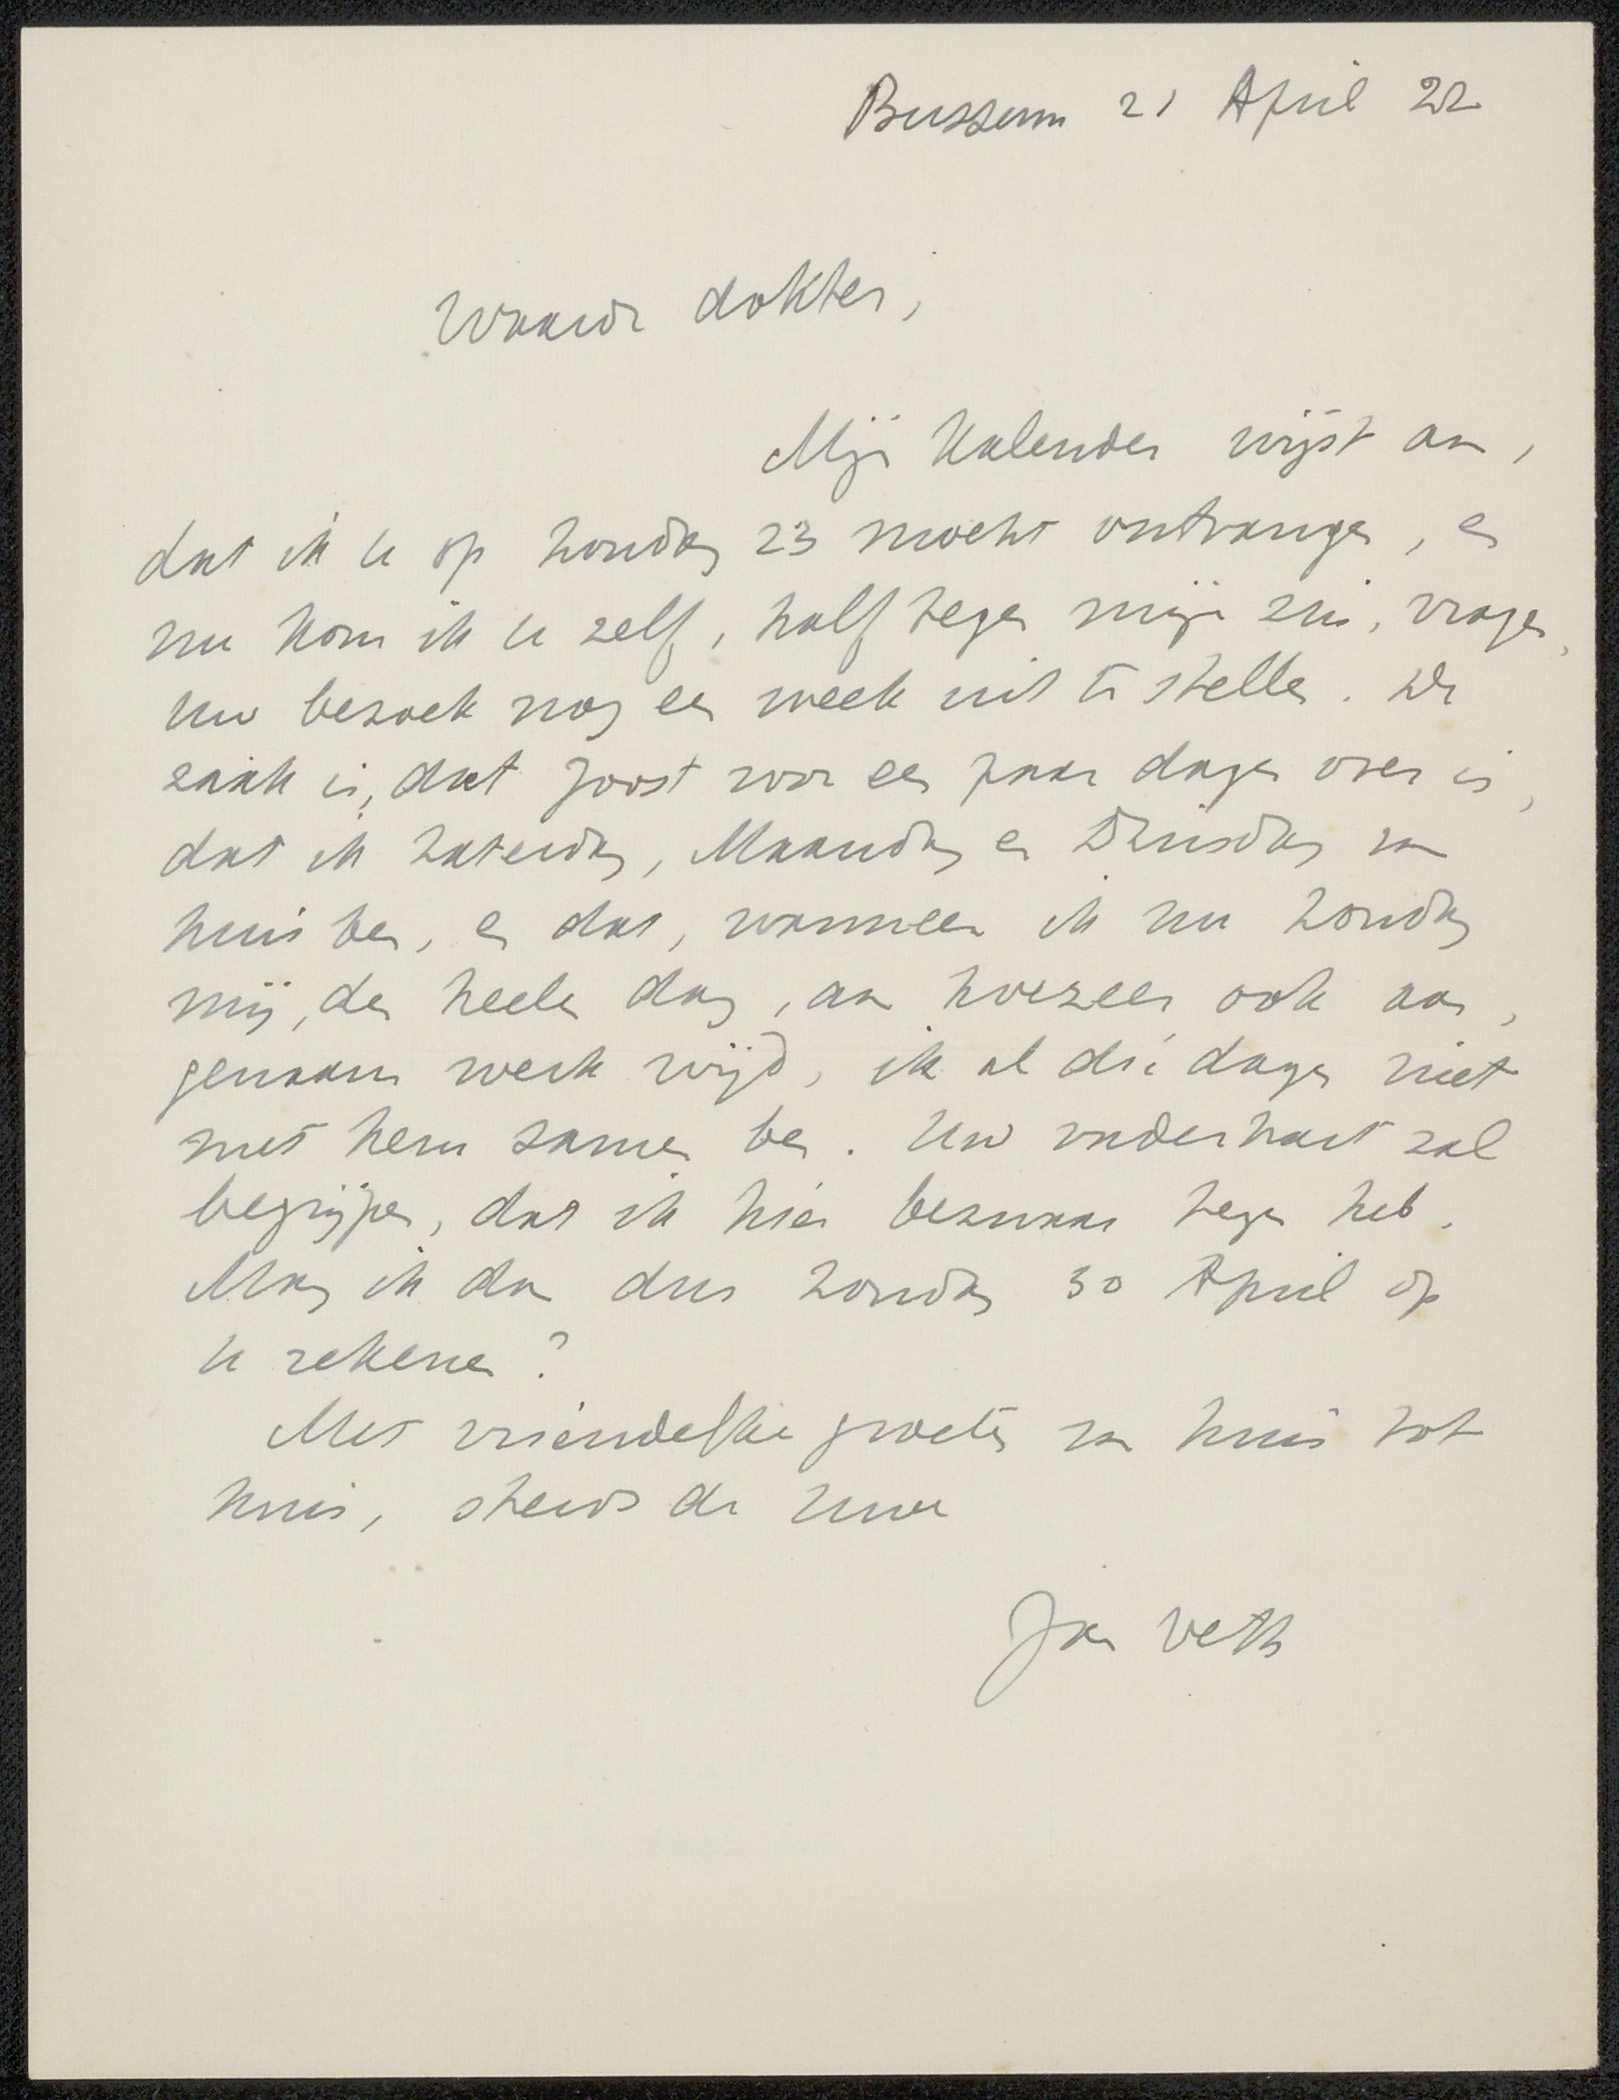 Bussum 21 April 22
Waarde dokter,
Mijn Kalender wijst aan,
dat ik u op Zondag 23 mocht ontvangen, en
nu kom ik u zelf, half tegen mijn zin, vragen,
uw bezoek nog een week uit te stellen. De
zaak is, dat Joost voor een paar dagen over is,
dat ik Zaterdag, Maandag en Dinsdag van
huis ben, en dat, wanneer ik nu Zondag
mij, den heelen dag, aan hoezeer ook aan,
genaam werk wijd, ik al die dagen niet
met hem samen ben. Uw vaderhart zal
begrijpen, dat ik hier bezwaar tegen heb.
Mag ik dan dus Zondag 30 April op
u rekenen?
Met vriendelijke groeten van huis tot
huis, steeds de Uwe
Jan Veth